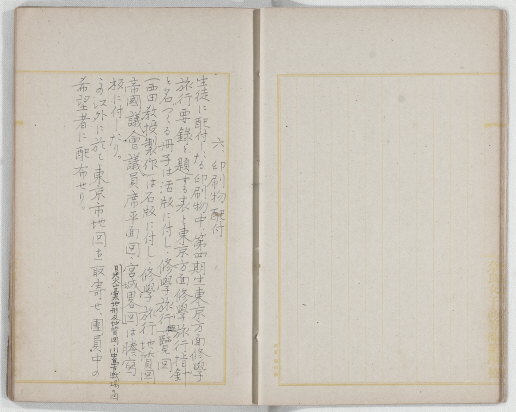 六、印刷物配付
生徒に配付したる印刷物中、第四期生東京方面修學
旅行要録と題する表と東京方面修學旅行指針
と名づくる冊子は活版に付し、修學旅行一覧図
(西田教授製作)は石版に付し、修學旅行地質図
帝國議會議員席平面図、宮城畧図は謄寫
板に付したり。
以外に於て東京市地図を取寄せ、團員中の
希望者に配布せり。